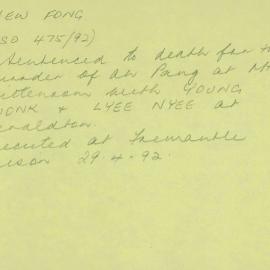 HEW FONG
SO 475/92)
Sentenced to death for the
murder of Ah Pang at Mt
ittenoom with YOUNG
UONK & LYEE NYEE at
eraldton.
xecuted at Fremantle
rison 29.4.92.